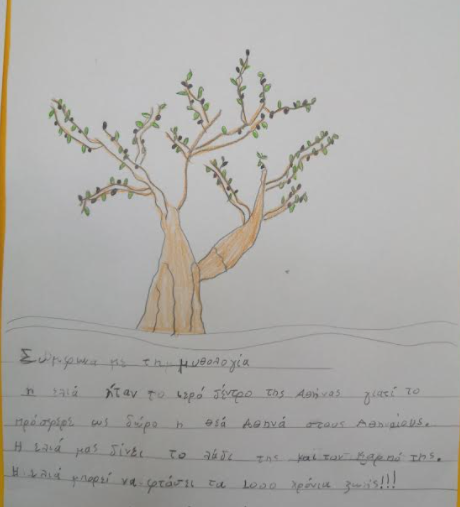 Σύμφωνα με τη μυθολογία
η ελιά ήταν το ιερό δέντρο της Αθήνας γιατί το
πρόσφερε ως δώρο η θεά Αθηνά στους Αθηναίους.
Η ελιά μας δίνει το λάδι της και τον καρπό της.
Η ελιά μπορεί να φτάσει τα 1000 χρόνια ζωής!!!